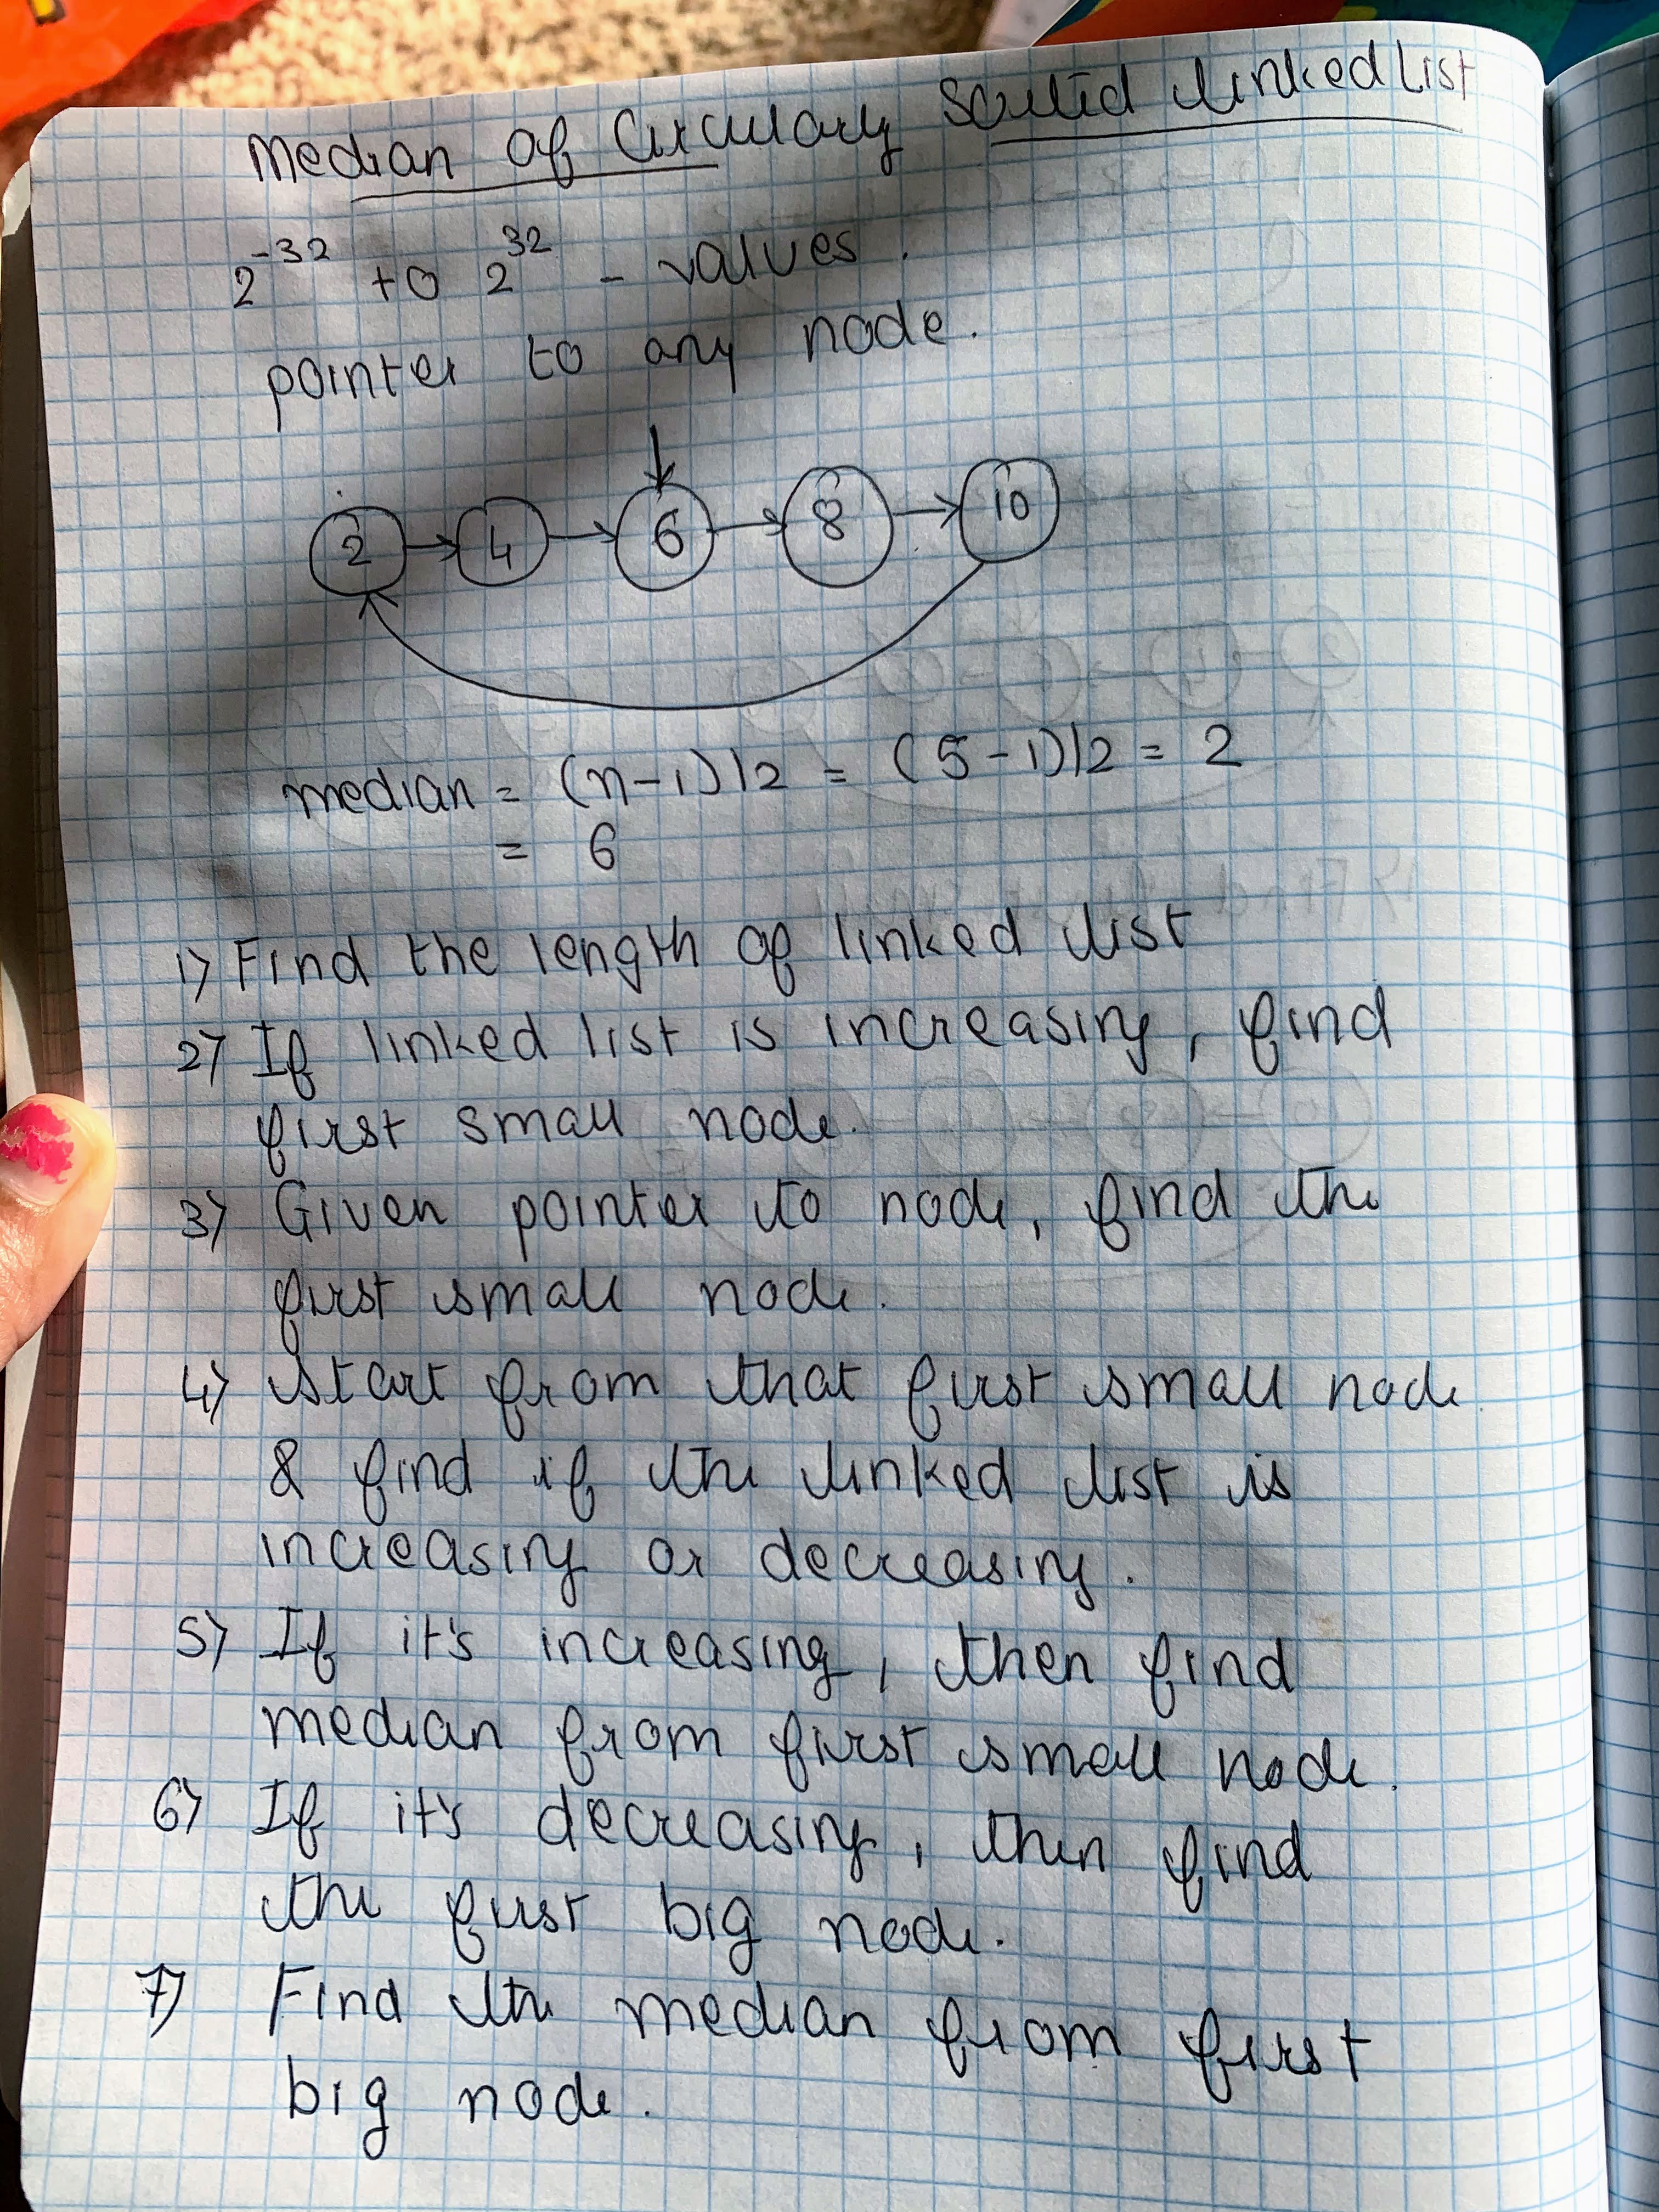 Median of Circularly Sorted Linked List
2^-32 to 2^32 - values.
pointer to any node.
2 → 4 → 6 → 8 → 10
median = (n-1)/2 = (5-1)/2 = 2
= 6
1) Find the length of linked list
2) If linked list is increasing, find
first small node.
3) Given pointer to node, find the
first small node.
4) Start from that first small node
& find if the linked list is
increasing or decreasing.
5) If it's increasing, then find
median from first small node.
6) If it's decreasing, then find
the first big node.
7) Find the median from first
big node.